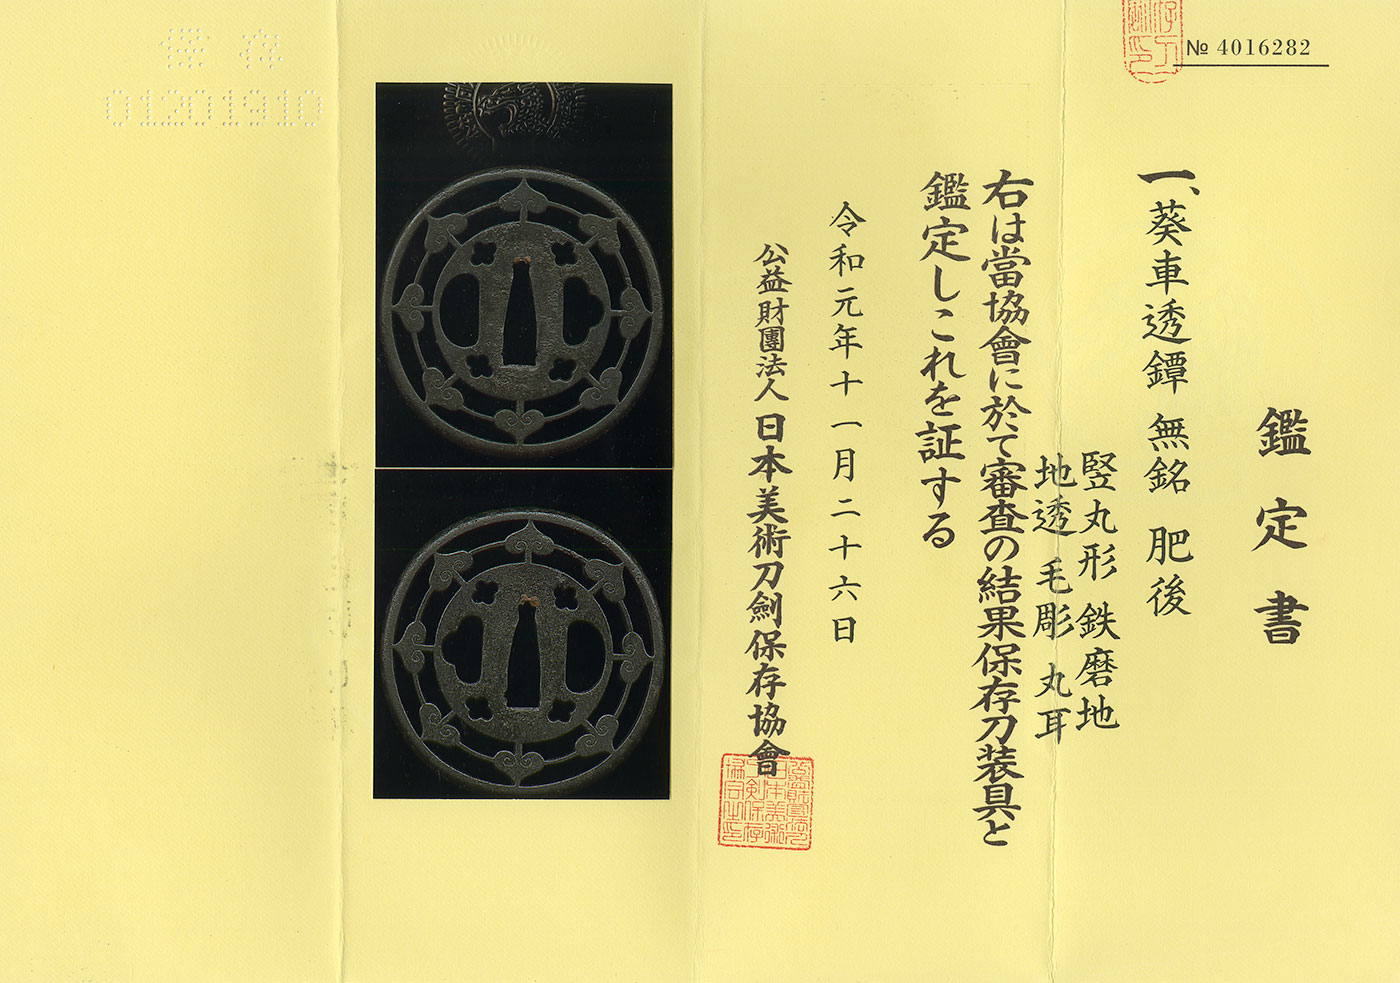 № 4016282
鑑定書
一、葵車透鐔 無銘 肥後
竪丸形 鉄磨地
地透 毛彫 丸耳
右は當協會に於て審査の結果保存刀装具と
鑑定しこれを証する
令和元年十一月二十六日
公益財團法人 日本美術刀劍保存協會
保存
01201910